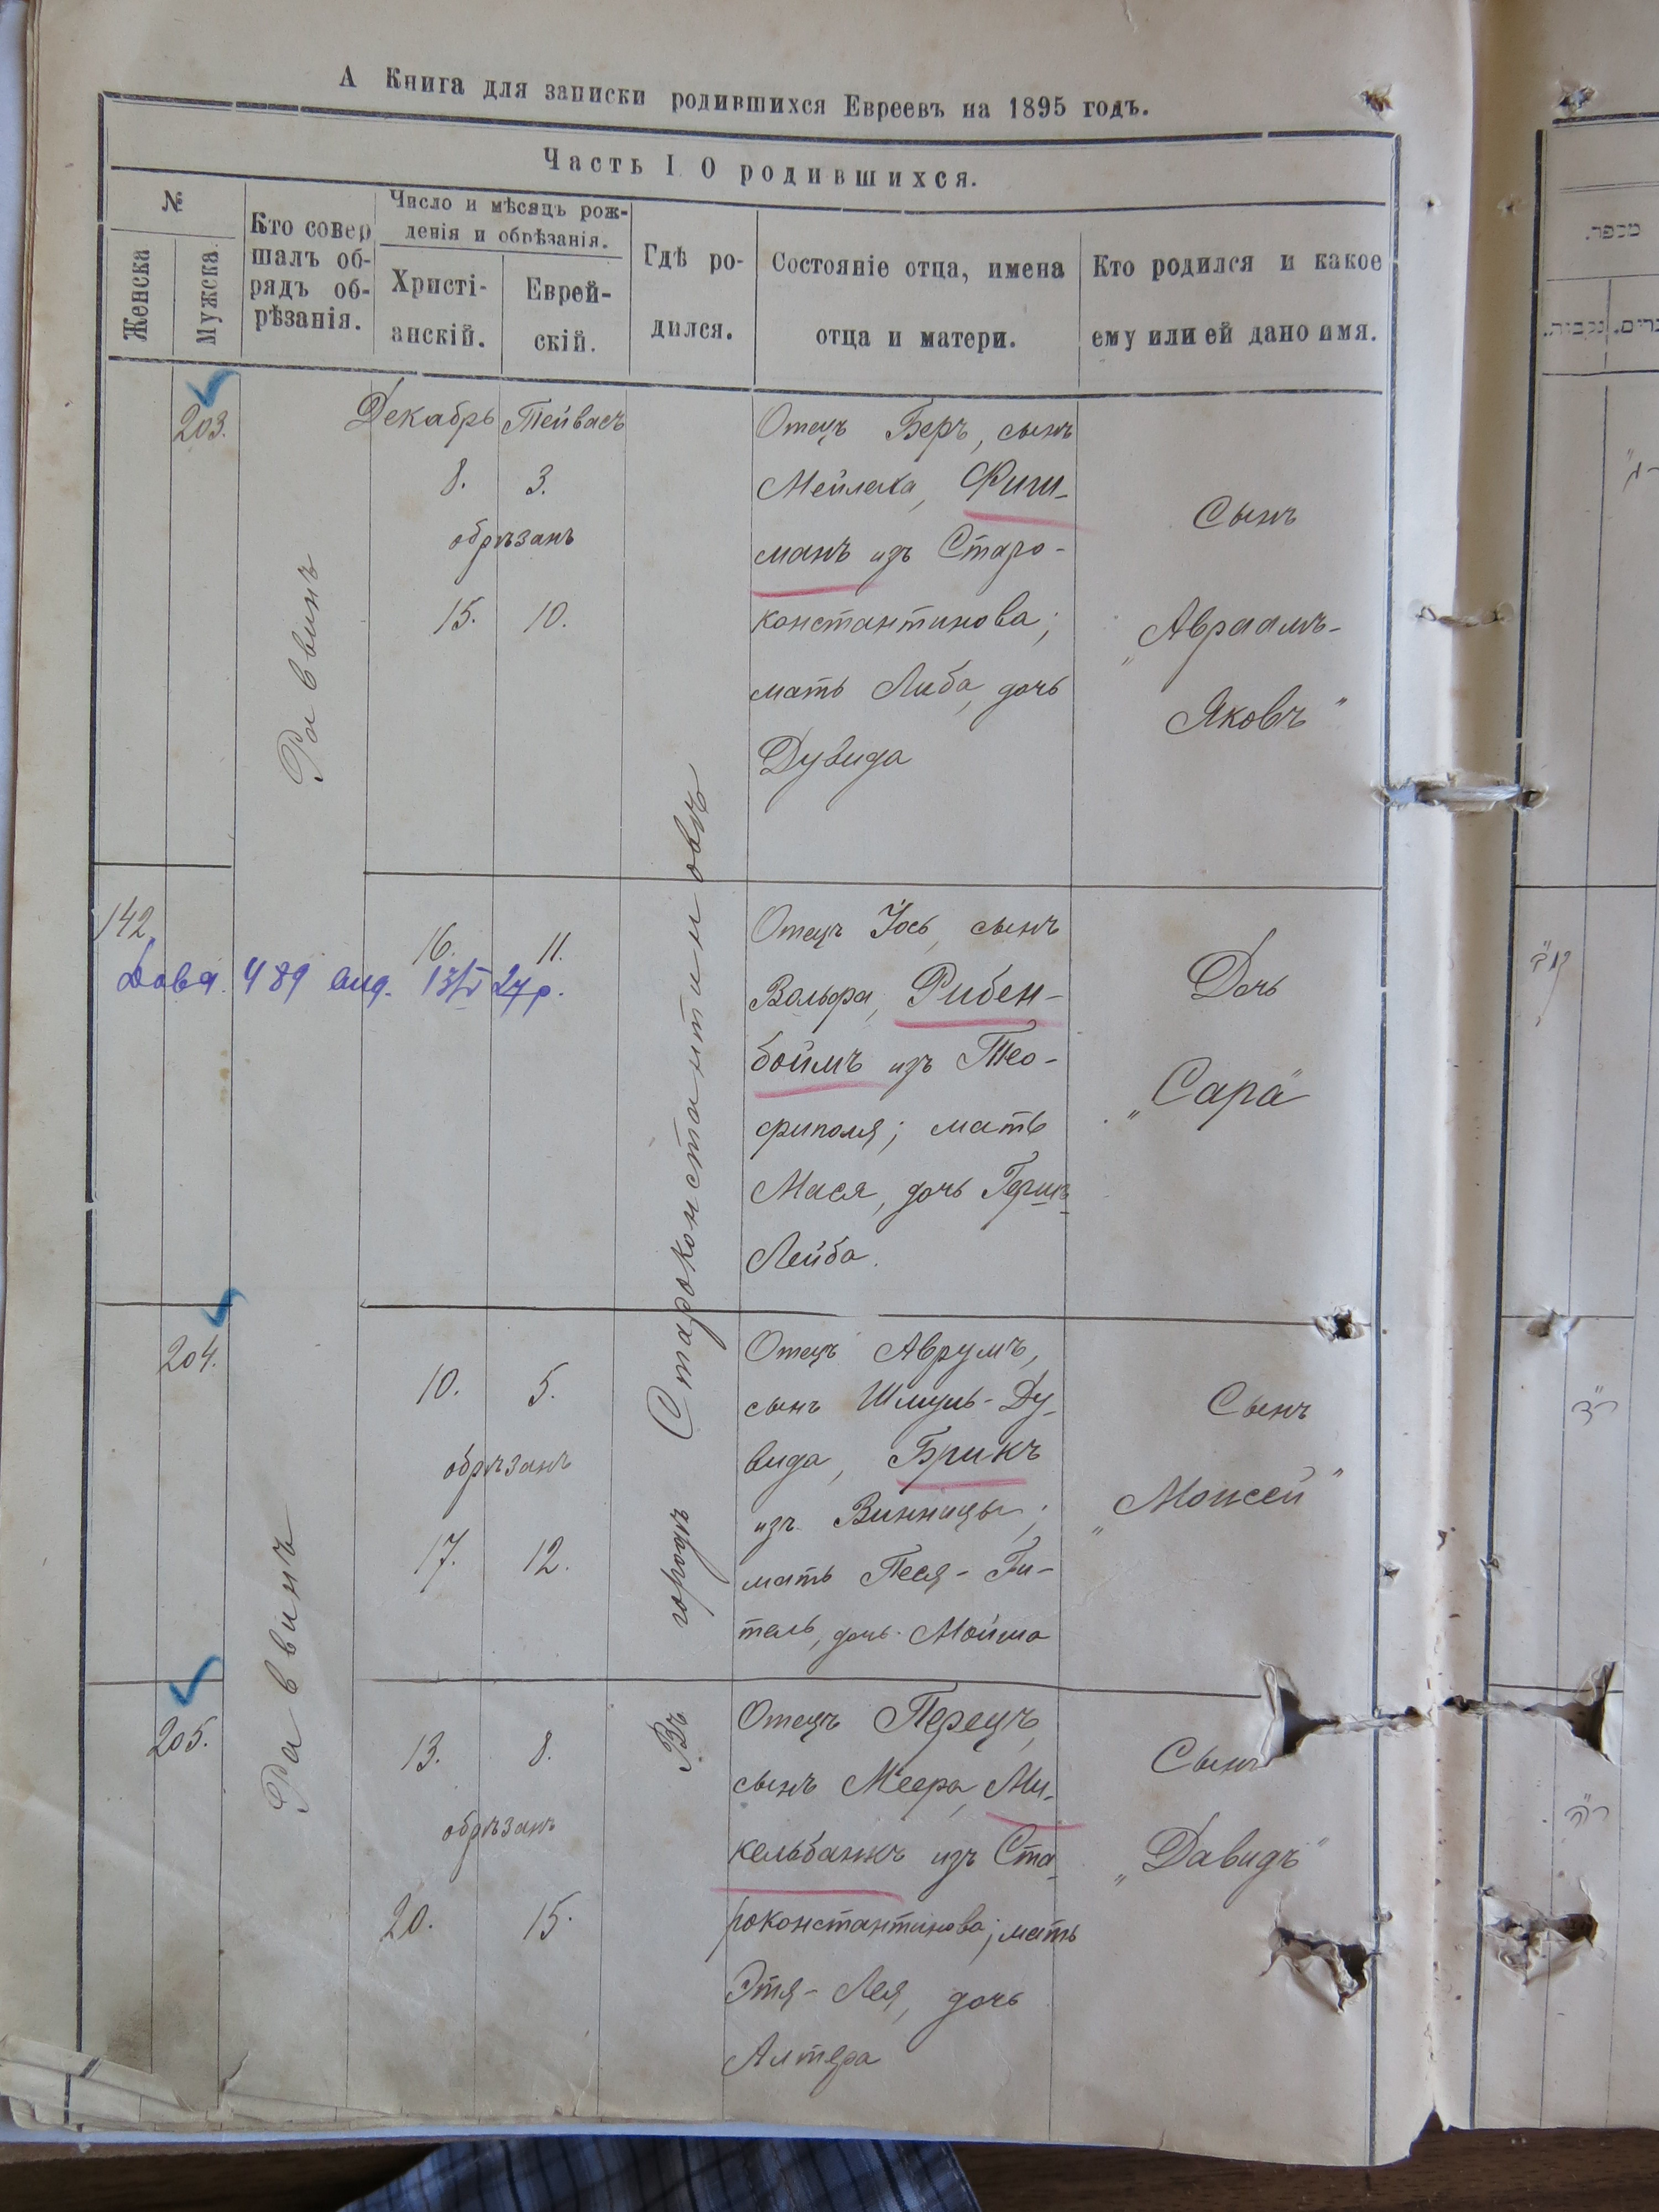 А Книга для записки родившихся Евреевъ на 1895 годъ.
Часть I О родившихся.
№
Женска
Мужска
Кто совер
шалъ об-
рядъ об-
рѣзанія.
Число и мѣсяцъ рож-
денія и обрѣзанія.
Христі-
анскій.
Еврей-
скій.
Гдѣ ро-
дился.
Состояніе отца, имена
отца и матери.
Кто родился и какое
ему или ей дано имя.
203.
Раввинъ
Декабрь Тейвасъ
8. 3.
обрѣзанъ
15. 10.
Въ городѣ Староконстантиновѣ
Отецъ Беръ, сынъ
Мейлеха, Фиш-
манъ изъ Старо-
константинова;
мать Либа, дочь
Дувида
Сынъ
„Авраамъ-
Яковъ"
142.
16. 11.
489 13/IV 27 р.
Отецъ Іось, сынъ
Вольфа, Рибен-
боймъ изъ Тео-
фиполя; мать
Мася, дочь Гершъ
Лейба.
Дочь
„Сара"
204.
Раввинъ
10. 5.
обрѣзанъ
17. 12.
Отецъ Аврумъ,
сынъ Шмуль-Ду-
вида, Брикъ
изъ Винницы;
мать Песя-Ги-
тель, дочь Мойша
Сынъ
„Моисей"
205.
13. 8.
обрѣзанъ
20. 15.
Отецъ Перецъ,
сынъ Меера, Ми-
кельбанкъ изъ Ста-
роконстантинова; мать
Этя-Лея, дочь
Алтера
Сынъ
„Давидъ"
מספר.
נקבות.
ר"ד
ר"ה